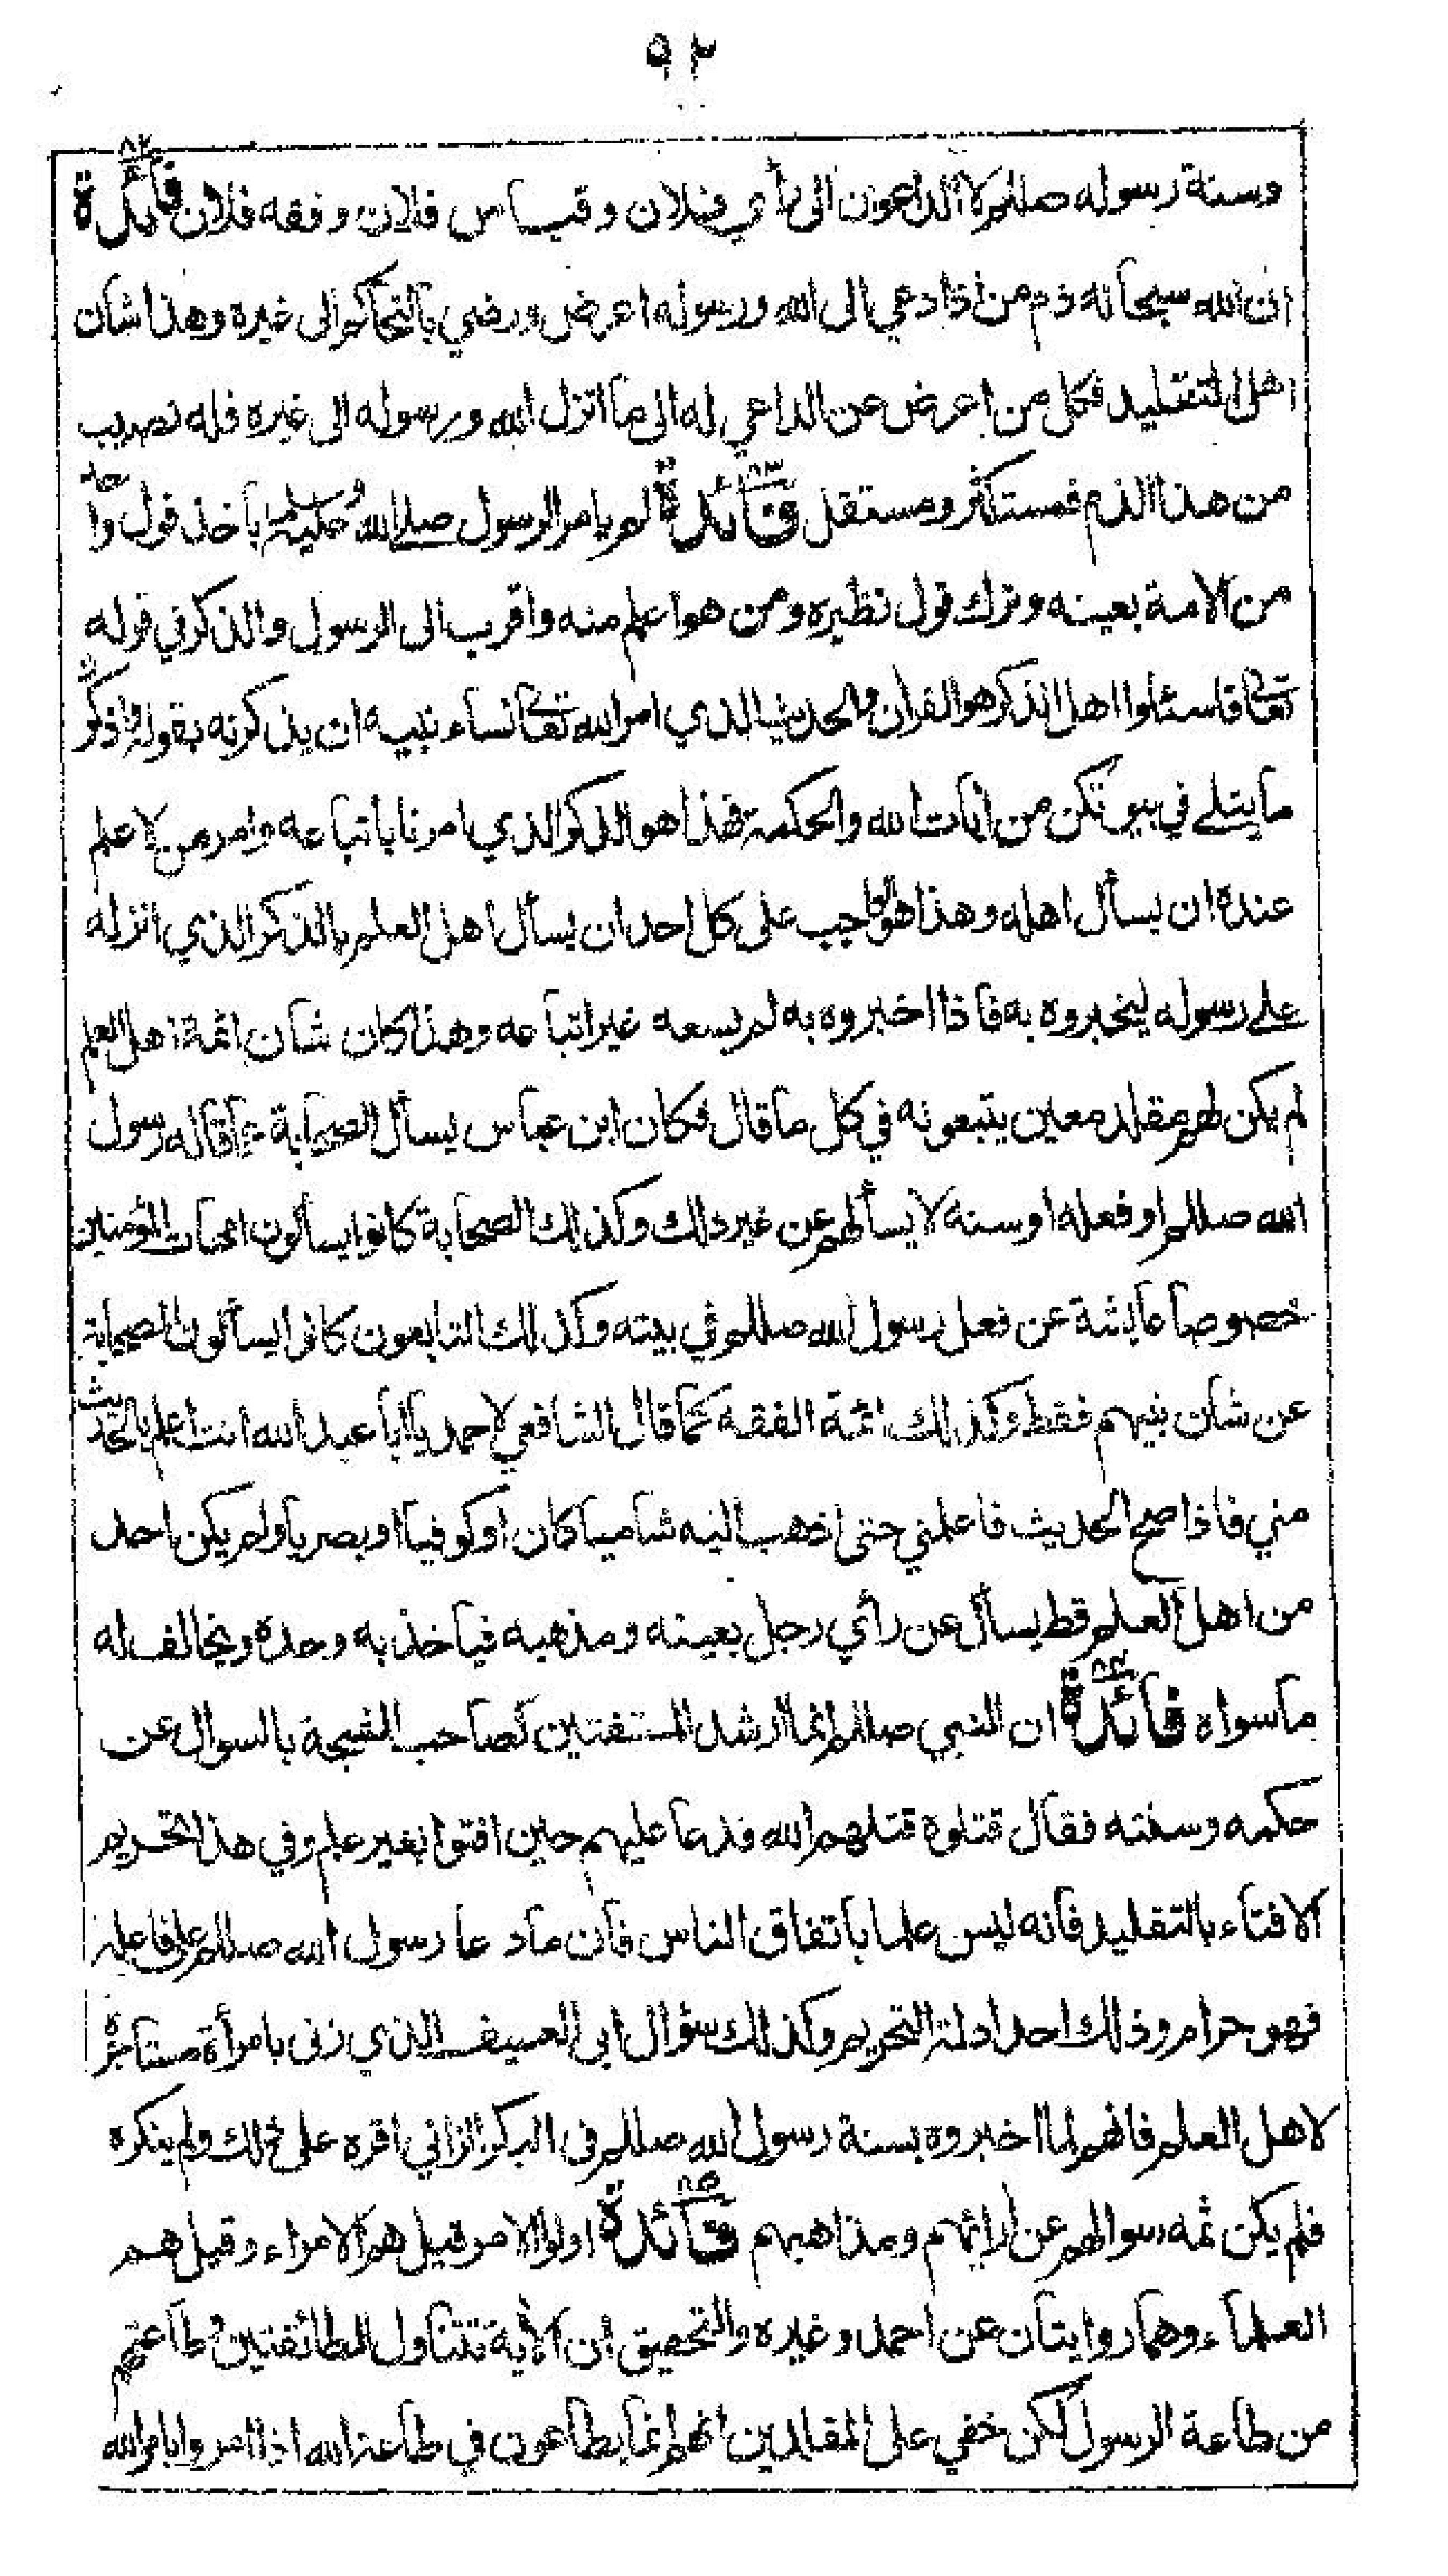 ٩٢
وسنة رسوله صللم لا الداعون الى رأي فلان وقياس فلان وفقه فلان فائدة ٨٢
ان الله سبحانه ذم من اذا دعي الى الله ورسوله اعرض ورضي بالتحاكم الى غيره وهذا شأن
اهل التقليد فكل من اعرض عن الداعي له الى ما انزل الله ورسوله الى غيره فله نصيب
من هذا الذم فمستكثر ومستقل فائدة ٨٣ لم يامر الرسول صلى الله عليه وسلم بأخذ قول واحد
من الامة بعينه وترك قول نظيره ومن هو اعلم منه واقرب الى الرسول والذكر في قوله
تعالى فاسئلوا اهل الذكر هو القرآن والحديث الذي امر الله تعالى نساء نبيه ان يذكرنه بقوله واذكرن
ما يتلى في بيوتكن من آيات الله والحكمة فهذا هو الذكر الذي امرنا باتباعه وامر من لا علم
عنده ان يسأل اهله وهذا هو الواجب على كل احد ان يسأل اهل العلم بالذكر الذي انزله
على رسوله ليخبروه به فاذا اخبروه به لم يسعه غير اتباعه وهذا كان شأن ائمة اهل العلم
لم يكن لهم مقلد معين يتبعونه في كل ما قال فكان ابن عباس يسأل الصحابة عما قاله رسول
الله صللم او فعله او سنه لا يسألهم عن غير ذلك وكذلك الصحابة كانوا يسألون امهات المؤمنين
خصوصا عايشة عن فعل رسول الله صللم في بيته وكذلك التابعون كانوا يسألون الصحابة
عن شأن نبيهم فقط وكذلك ائمة الفقه كما قال الشافعي لاحمد يا ابا عبد الله انت اعلم بالحديث
مني فاذا صح الحديث فاعلمني حتى اذهب اليه شاميا كان او كوفيا او بصريا ولم يكن احد
من اهل العلم قط يسأل عن رأي رجل بعينه ومذهبه فيأخذ به وحده ويخالف له
ما سواه فائدة ٨٤ ان النبي صللم انما ارشد المستفتين كصاحب الشجة بالسوال عن
حكمه وسنته فقال قتلوه قتلهم الله فدعا عليهم حين افتوا بغير علم وفي هذا تحريم
الافتاء بالتقليد فانه ليس علما باتفاق الناس فان ما دعا رسول الله صللم على فاعله
فهو حرام وذلك احد ادلة التحريم وكذلك سؤال ابي العسيف الذي زنى بامرأة مستأجره
لاهل العلم فانهم لما اخبروه بسنة رسول الله صللم فى البكر الزاني اقره على ذلك ولم ينكره
فلم يكن ثمه سوالهم عن ارائهم ومذاهبهم فائدة ٨٥ اولوا الامر قيل هم الامراء وقيل هم
العلماء وهما روايتان عن احمد وغيره والتحقيق ان الآية تتناول الطائفتين وطاعتهم
من طاعة الرسول لكن خفي على المقلدين انهم انما يطاعون في طاعة الله اذا امروا بامر الله